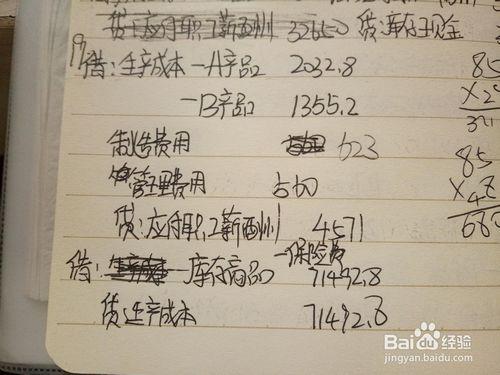 贷:应付职工薪酬 32650 贷:库存现金
19 借:生产成本—A产品 2032.8
—B产品 1355.2
制造费用 623
管理费用 560
贷:应付职工薪酬 4571
—保险费
借: —库存商品 71492.8
贷:生产成本 71492.8
85
85
Bai du 经验
jingyan.baidu.com